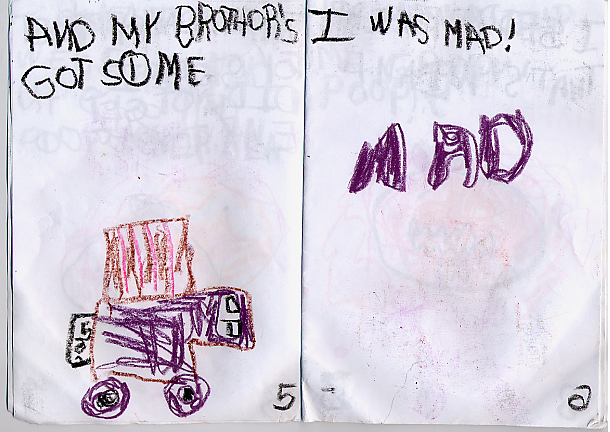 AND MY BROTHOR'S
GOT SOME
5
I WAS MAD!
MAD